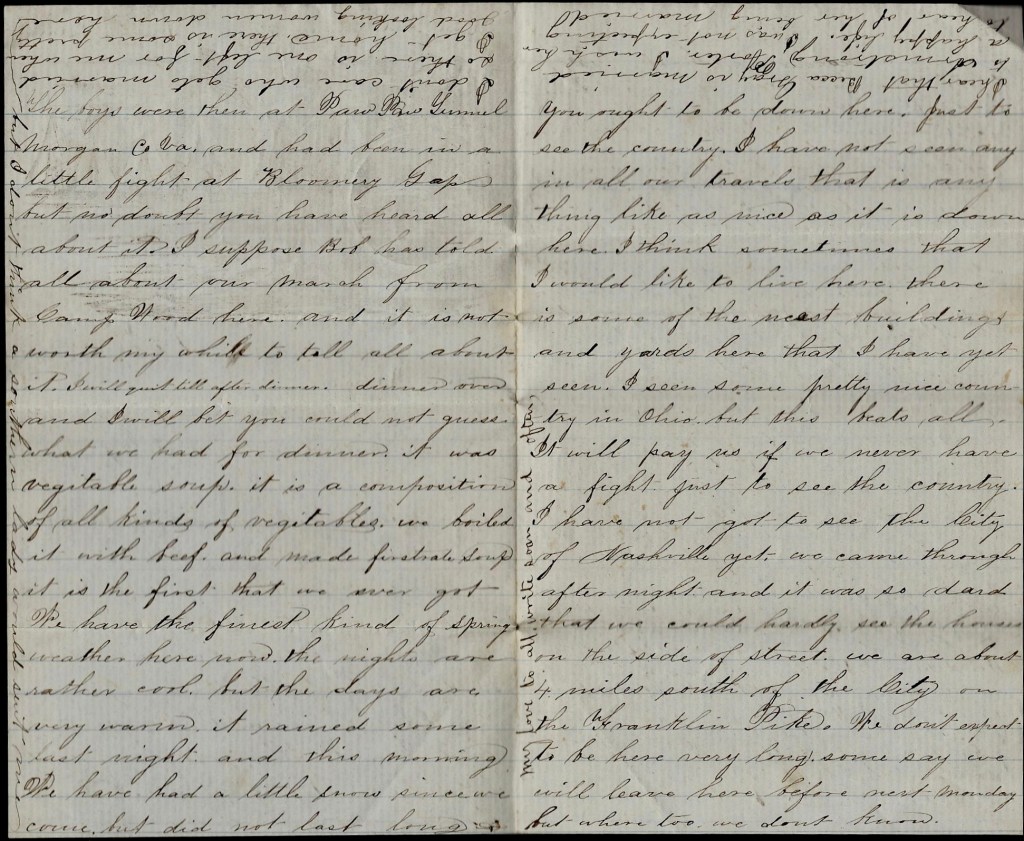 The boys were then at Paw Paw Tunnel
Morgan Co Va. and had been in a
little fight at Bloomery Gap
but no doubt you have heard all
about it. I suppose Bob has told
all about our march from
Camp Wood here. and it is not
worth my while to tell all about
it. I will quit till after dinner. dinner over
and I will bet you could not guess
what we had for dinner. it was
vegitable soup. it is a composition
of all kinds of vegitables. we boiled
it with beef. and made firstrate soup
it is the first that we ever got
We have the finest kind of spring
weather here now. the nights are
rather cool. but the days are
very warm. it rained some
last night. and this morning
We have had a little snow since we
come. but did not last long
you ought to be down here. just to
see the country. I have not seen any
in all our travels that is any
thing like as nice as it is down
here. I think sometimes that
I would like to live here. there
is some of the neast buildings
and yards here that I have yet
seen. I seen some pretty nice coun-
try in Ohio. but this beats all.
It will pay us if we never have
a fight just to see the country.
I have not got to see the City
of Nashville yet. we came through
after night and it was so dard
that we could hardly see the houses
on the side of street. we are about
4 miles south of the City on
the Franklin Pike. We dont expect
to be here very long. some say we
will leave here before next monday
but where too. we dont know.
I hear that Becca Gray is married
to Armstrong Porter. I wish her
a happy life. I was not expecting
to hear of her being married
I dont care who gets married
so there is one left for me when
I get home. there is some pretty
good looking women down here
but I don't think a southern lady would suit me
My love to all. write soon and often